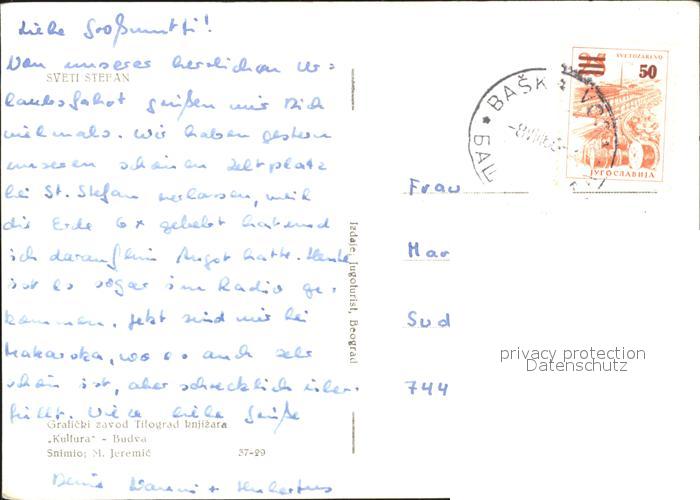 Liebe Großmutti!
Von unserer herrlichen Ur=
SVETI STEFAN
laubsfahrt grüßen wir Dich
vielmals. Wir haben gestern
unseren schönen Zeltplatz
bei St. Stefan verlassen, weil
die Erde 6x gebebt hat und
ich daraufhin Angst hatte. Heute
ist es sogar im Radio ge-
kommen. Jetzt sind wir bei
Makarska, wo es auch sehr
schön ist, aber schrecklich über-
füllt. Viele liebe Grüße
Grafički zavod Titograd knjižara
„Kultura" - Budva
Snimio: M. Jeremić 37-29
Deine + Hubertus
Izdaje, Jugoturist, Beograd
SVETOZAREVO
50
ЈУГОСЛАВИЈА
BAŠK VO
Frau
Mar
Sud
744
privacy protection
Datenschutz